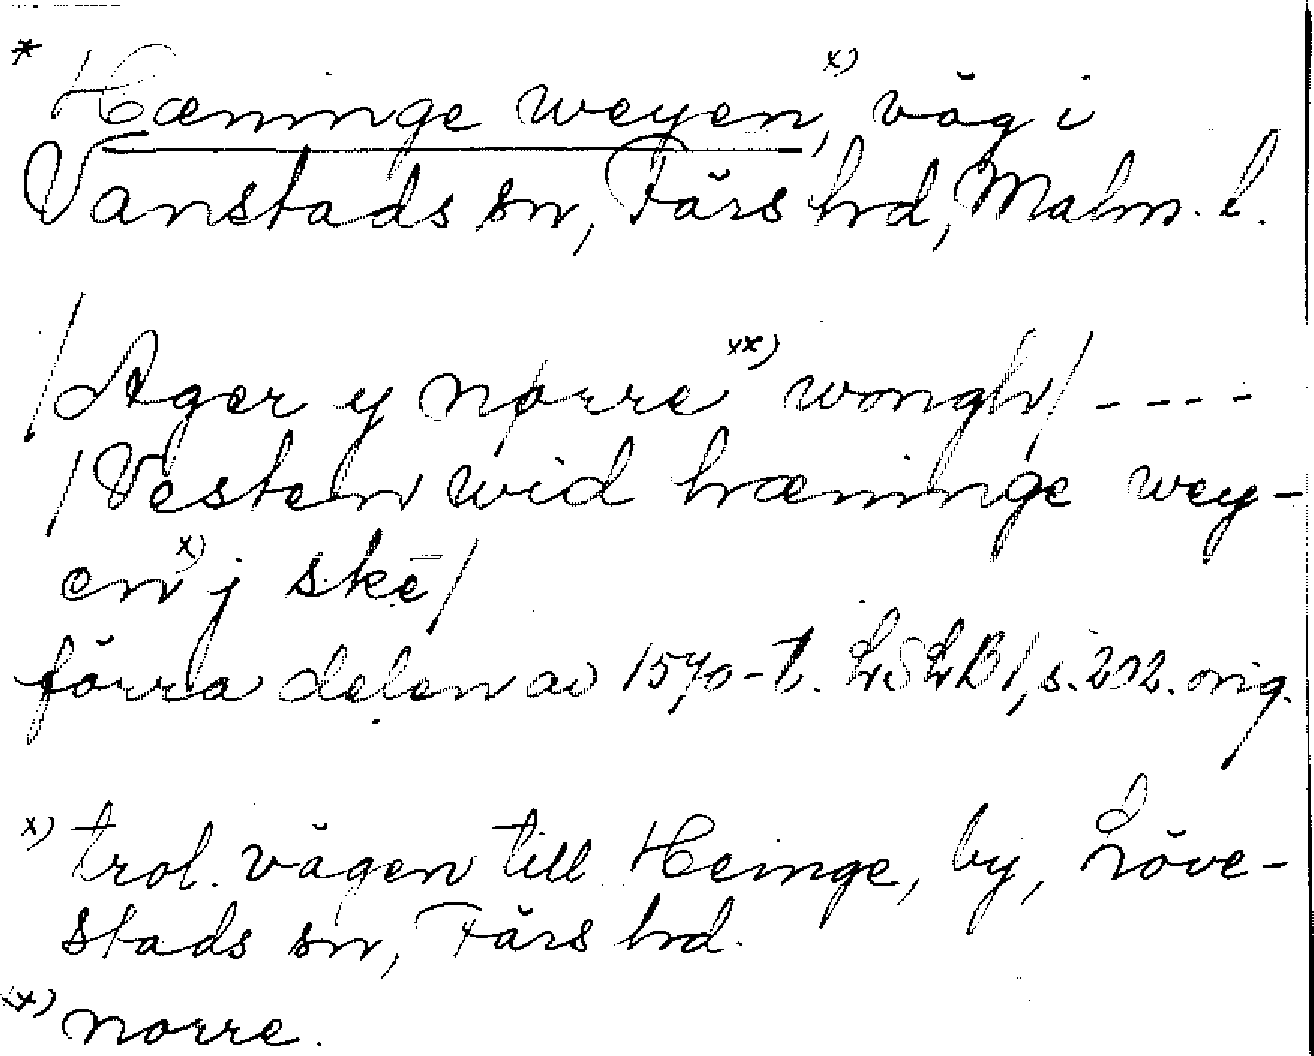 * Hæninge weyen,ˣ⁾ väg i
Vanstads sn, Färs hd, Malm. l.
/Ager y nørreˣˣ⁾ wongh/ ----
/Vesten wid hæninge wey-
enˣ⁾ j skē/
förra delen av 1570-t. LSLB 1, s. 202. orig.
x) trol. vägen till Heinge, by, Löve-
stads sn, Färs hd.
xx) norre.